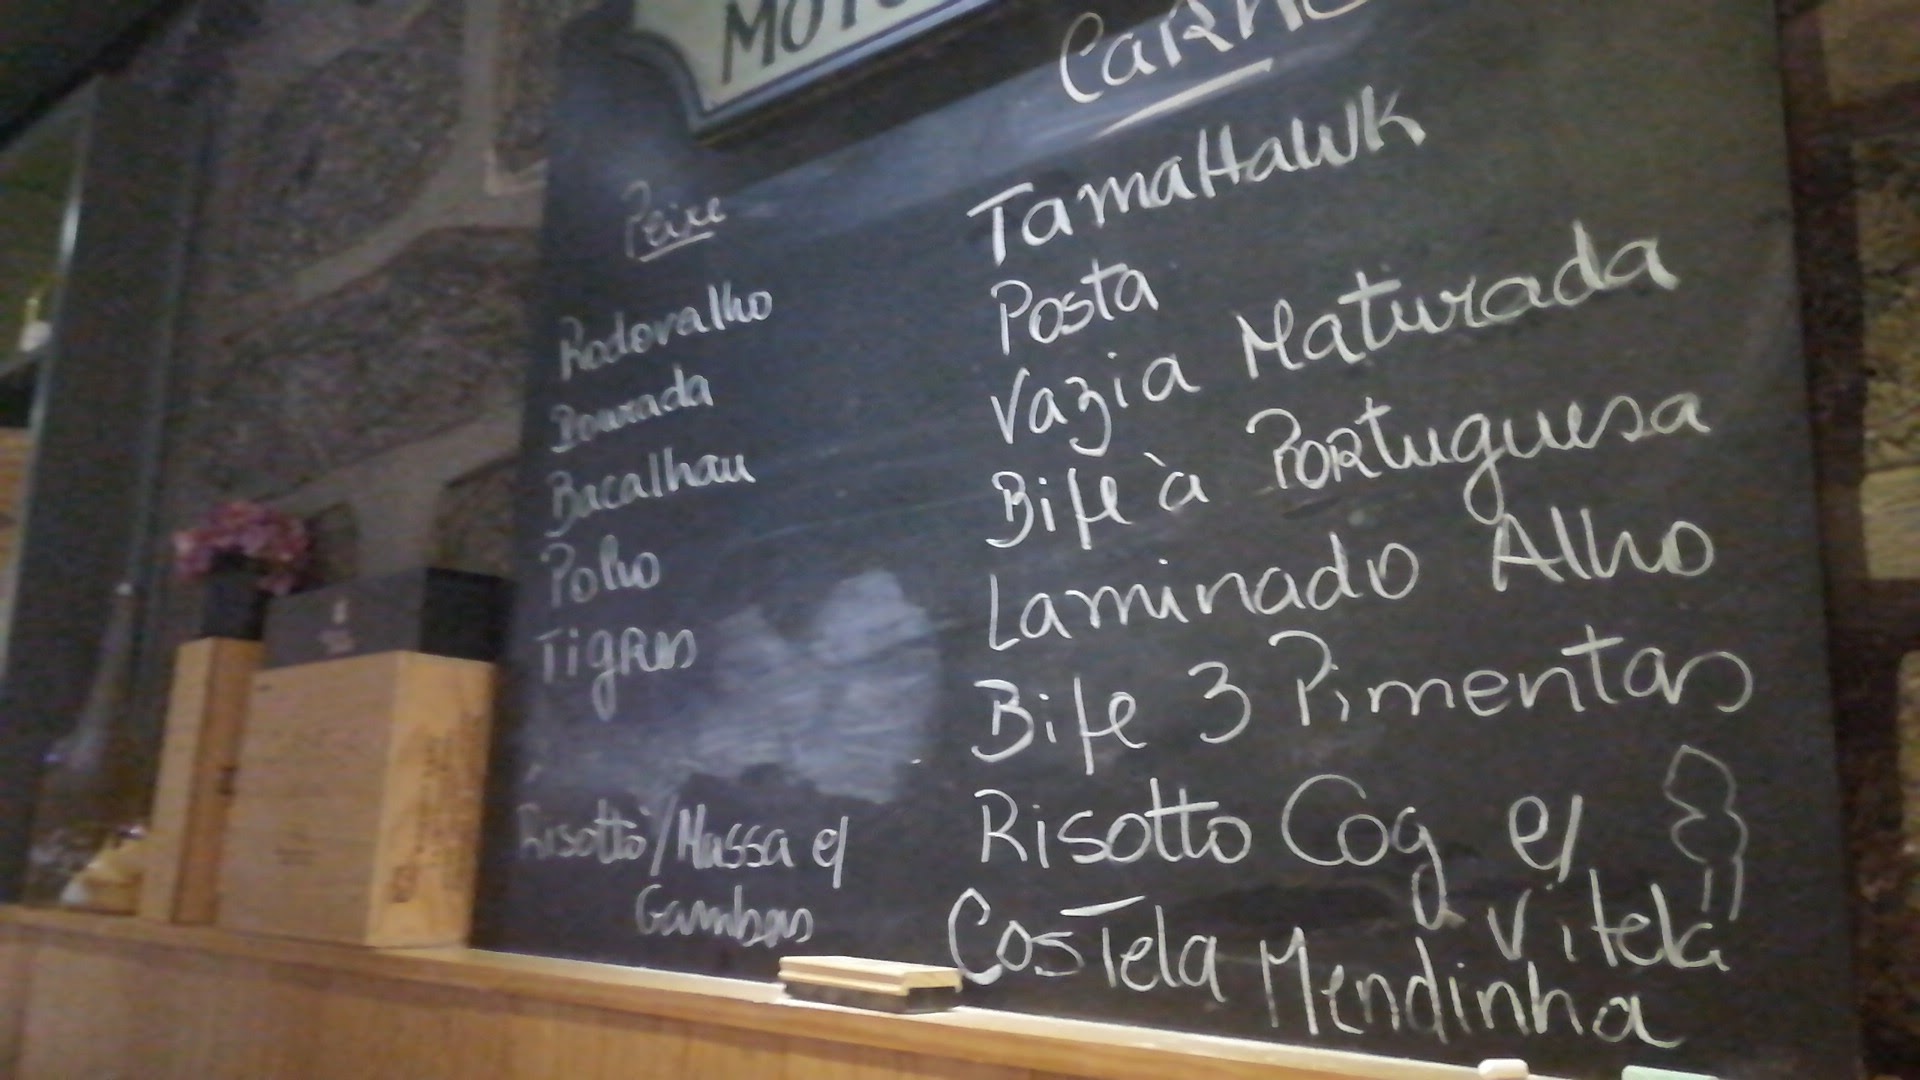 Peixe
Rodovalho
Dourada
Bacalhau
Polvo
Tigres
Risotto/Massa c/
Gambas
Carne
TamaHawk
Posta
Vazia Maturada
Bife à Portuguesa
Laminado Alho
Bife 3 Pimentas
Risotto Cog c/
Vitela
Costela Mendinha